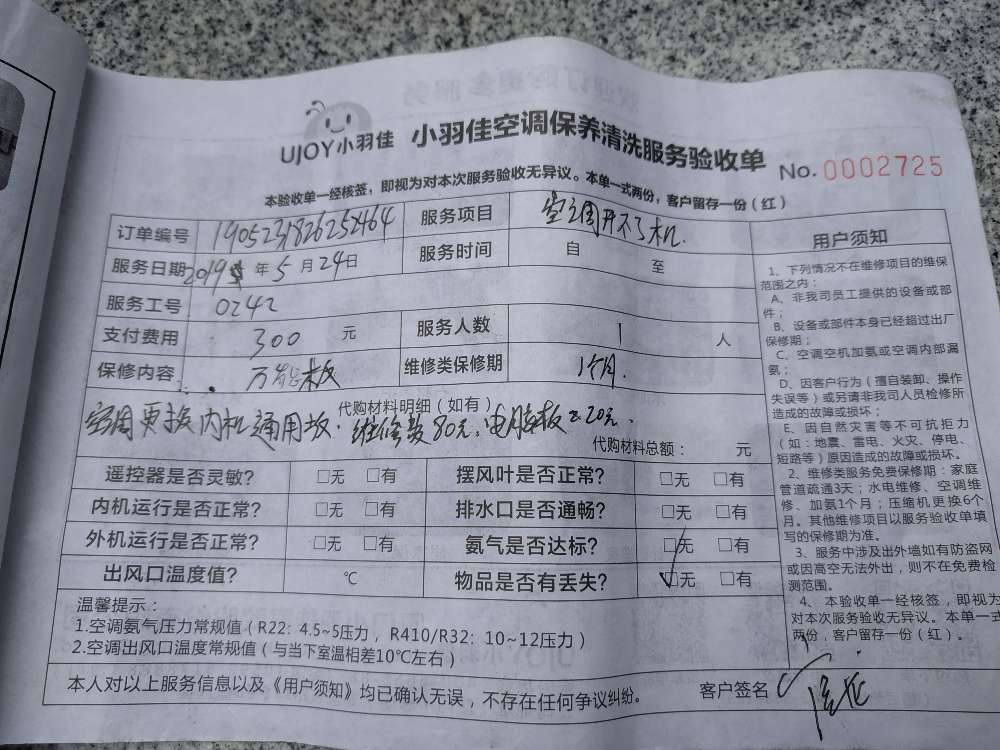 UJOY小羽佳 小羽佳空调保养清洗服务验收单 No. 0002725
本验收单一经核签，即视为对本次服务验收无异议。本单一式两份，客户留存一份（红）
订单编号 1905231826252464 服务项目 空调开不了机.
服务日期 2019 年 5 月 24 日 服务时间 自 至
服务工号 0242
支付费用 300 元 服务人数 1 人
保修内容: 万能板 维修类保修期 1个月.
代购材料明细（如有）
空调更换内机通用板. 维修费80元、电脑板220元.
代购材料总额： 元
遥控器是否灵敏? □无 □有 摆风叶是否正常? □无 □有
内机运行是否正常? □无 □有 排水口是否通畅? □无 □有
外机运行是否正常? □无 □有 氨气是否达标? □无 □有
出风口温度值? ℃ 物品是否有丢失? □无 □有
温馨提示：
1.空调氨气压力常规值（R22：4.5~5压力，R410/R32：10~12压力）
2.空调出风口温度常规值（与当下室温相差10℃左右）
本人对以上服务信息以及《用户须知》均已确认无误，不存在任何争议纠纷。 客户签名
用户须知
1、下列情况不在维修项目的维保
范围之内：
A、非我司员工提供的设备或部
件；
B、设备或部件本身已经超过出厂
保修期；
C、空调空机加氨或空调内部漏
氨；
D、因客户行为（擅自装卸、操作
失误等）或另请非我司人员检修所
造成的故障或损坏；
E、因自然灾害等不可抗拒力
（如：地震、雷电、火灾、停电、
短路等）原因造成的故障或损坏。
2、维修类服务免费保修期：家庭
管道疏通3天；水电维修、空调维
修、加氨1个月；压缩机更换6个
月。其他维修项目以服务验收单填
写的保修期为准。
3、服务中涉及出外墙如有防盗网
或因高空无法外出，则不在免费检
测范围。
4、本验收单一经核签，即视为
对本次服务验收无异议。本单一式
两份，客户留存一份（红）。